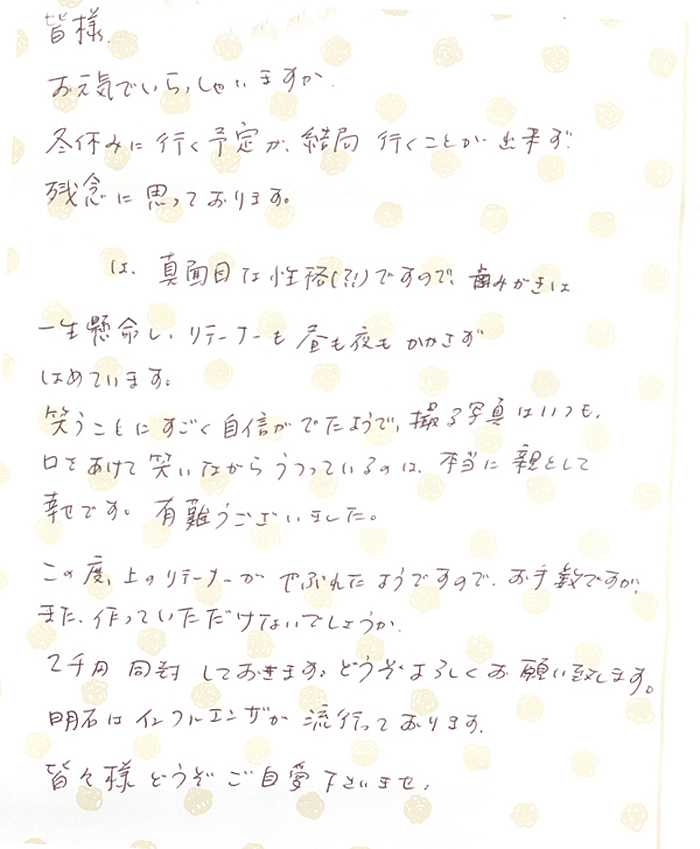 皆様.
お元気でいらっしゃいますか.
冬休みに行く予定が、結局 行くことが出来ず.
残念に思っております。
は、真面目な性格(?!)ですので、歯みがきは
一生懸命し、リテーナーも昼も夜もかかさず
はめています。
笑うことにすごく自信がでたようで、撮る写真はいつも、
口をあけて笑いながらうつっているのは、本当に親として
幸せです。有難うございました。
この度、上のリテーナーがやぶれたようですので、お手数ですが、
また、作っていただけないでしょうか.
2千円 同封 しておきます。どうぞよろしくお願い致します。
明石はインフルエンザが流行っております.
皆々様どうぞご自愛下さいませ.